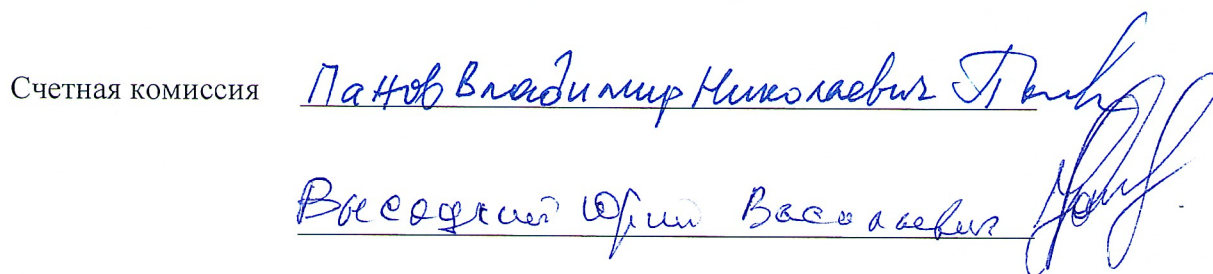 Счетная комиссия Панов Владимир Николаевич
Высоцкий Юрий Васильевич